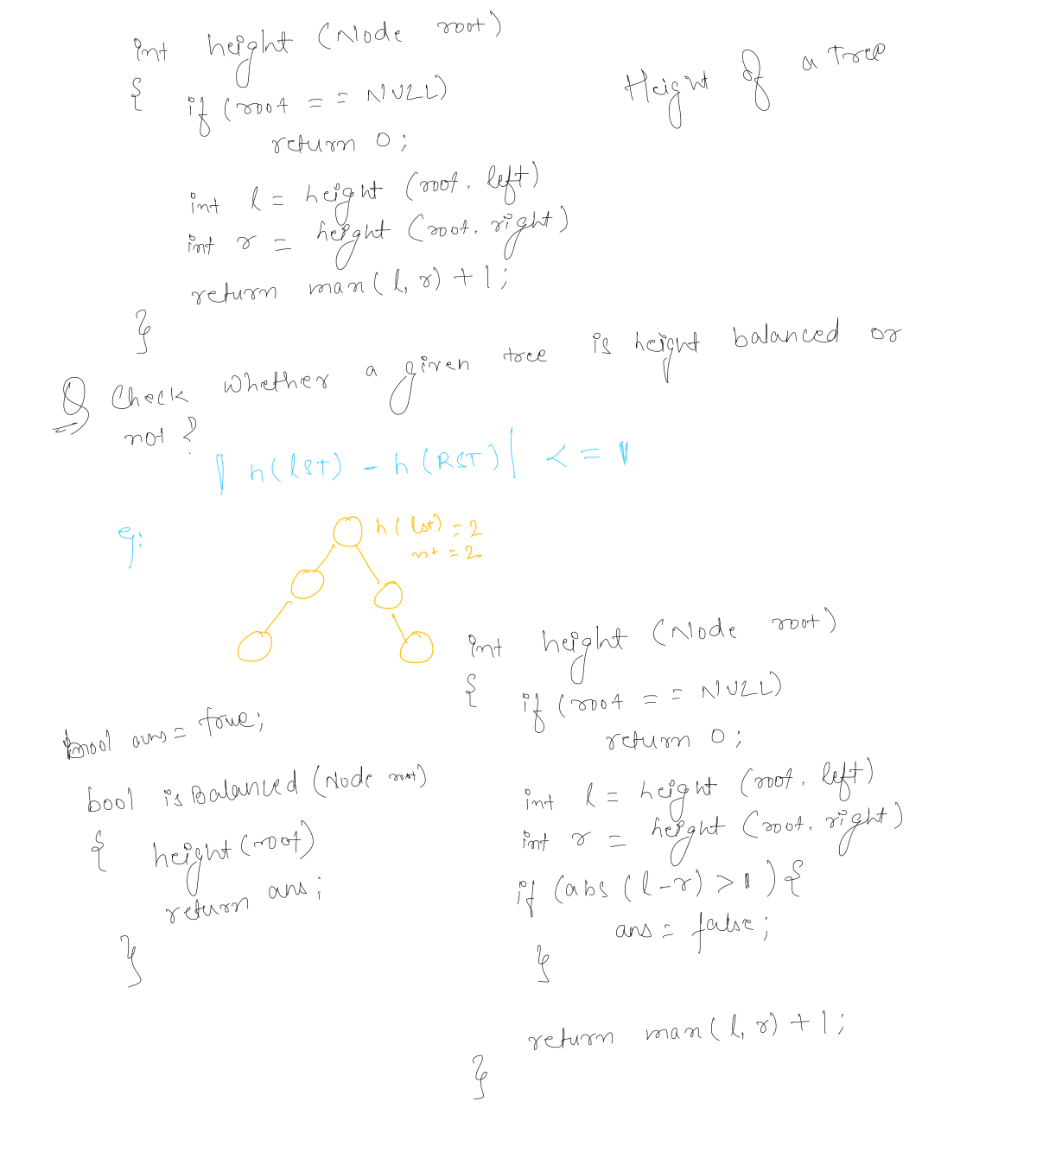 int height (Node root)
{
if (root == NULL)
return 0;
int l = height (root.left)
int r = height (root.right)
return max(l, r) + 1;
}
Height of a Tree
Q Check whether a given tree is height balanced or
not?
| h(lST) - h(RST) | <= 1
eg:
h(lst) = 2
rst = 2
bool ans = true;
bool isBalanced (Node root)
{
height(root)
return ans;
}
int height (Node root)
{
if (root == NULL)
return 0;
int l = height (root.left)
int r = height (root.right)
if (abs (l-r) > 1) {
ans = false;
}
return max(l, r) + 1;
}